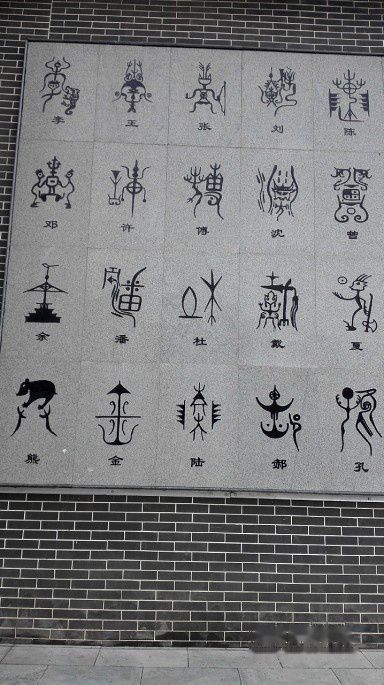 李 王 张 刘 陈
邓 许 傅 沈 曾
余 潘 杜 戴 夏
熊 金 陆 郝 孔